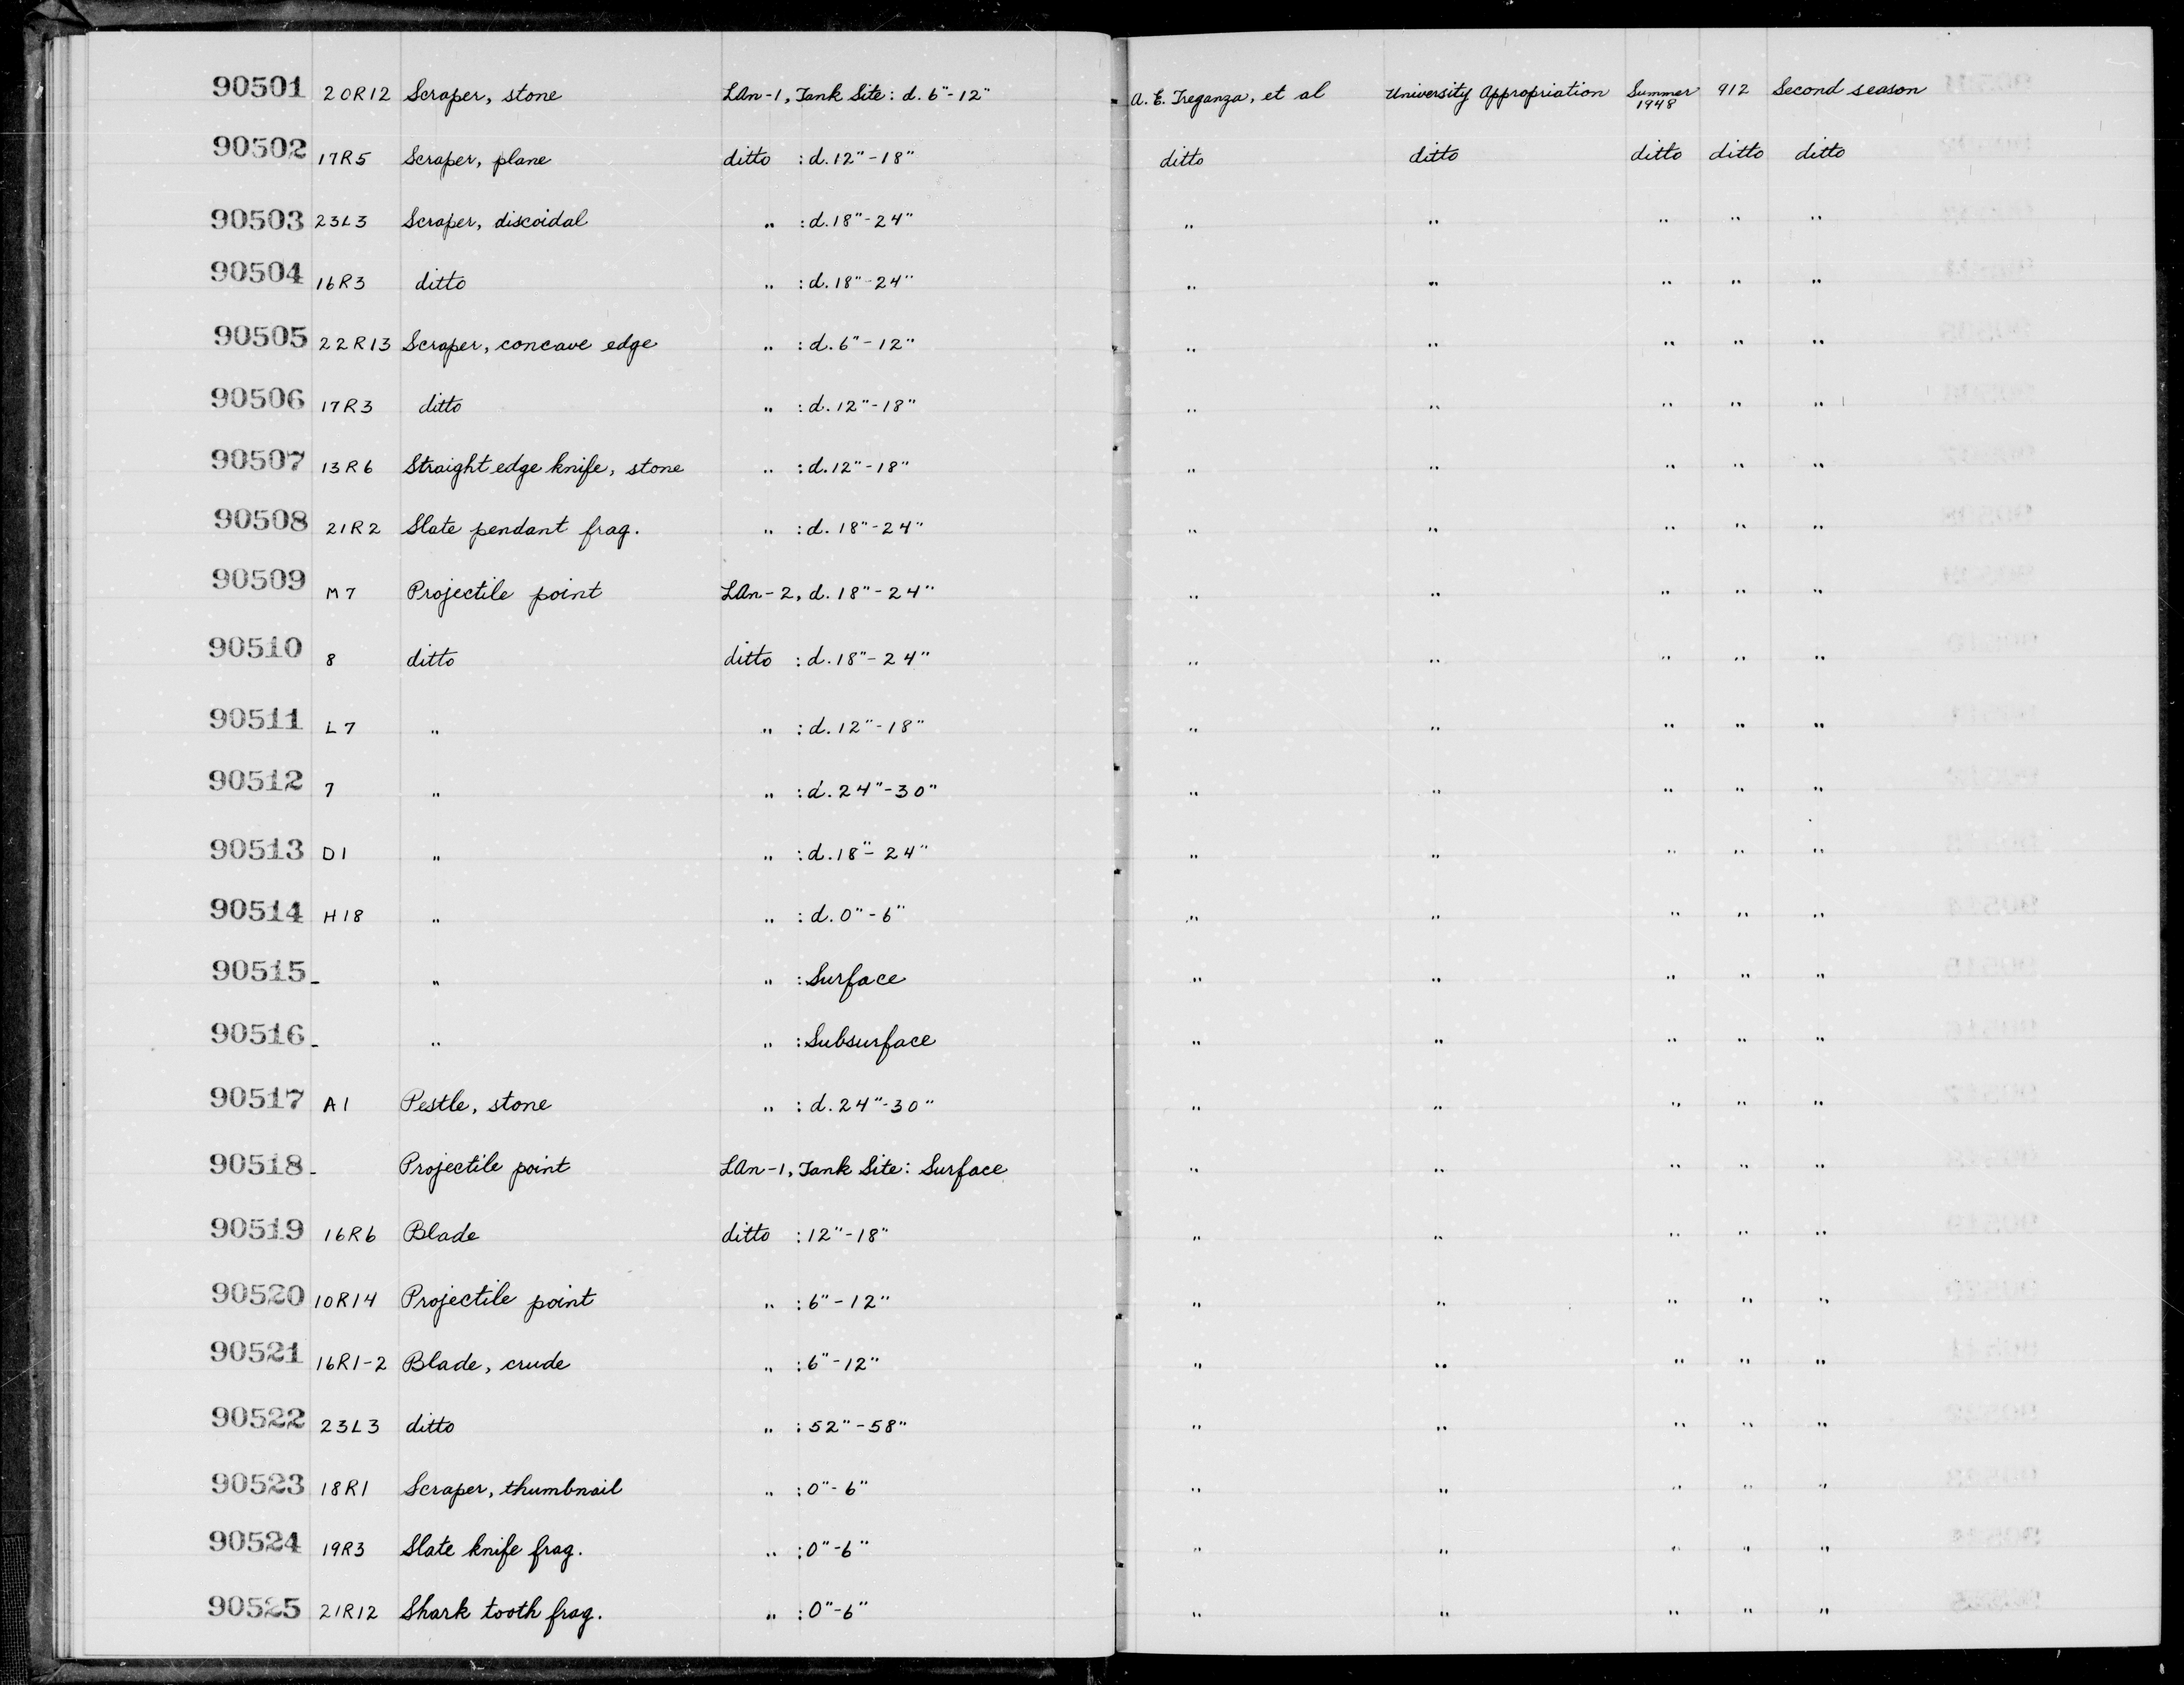 90501 20R12 Scraper, stone LAn-1, Tank Site: d. 6"-12" A. E. Treganza, et al University Appropriation Summer 1948 912 Second season
90502 17R5 Scraper, plane ditto : d. 12"-18" ditto ditto ditto ditto ditto
90503 23L3 Scraper, discoidal " : d. 18"-24" " " " " "
90504 16R3 ditto " : d. 18"-24" " " " " "
90505 22R13 Scraper, concave edge " : d. 6"-12" " " " " "
90506 17R3 ditto " : d. 12"-18" " " " " "
90507 13R6 Straight edge knife, stone " : d. 12"-18" " " " " "
90508 21R2 Slate pendant frag. " : d. 18"-24" " " " " "
90509 M7 Projectile point LAn-2, d. 18"-24" " " " " "
90510 8 ditto ditto : d. 18"-24" " " " " "
90511 L7 " " : d. 12"-18" " " " " "
90512 7 " " : d. 24"-30" " " " " "
90513 D1 " " : d. 18"-24" " " " " "
90514 H18 " " : d. 0"-6" " " " " "
90515 - " " : Surface " " " " "
90516 - " " : Subsurface " " " " "
90517 A1 Pestle, stone " : d. 24"-30" " " " " "
90518 - Projectile point LAn-1, Tank Site: Surface " " " " "
90519 16R6 Blade ditto : 12"-18" " " " " "
90520 10R14 Projectile point " : 6"-12" " " " " "
90521 16R1-2 Blade, crude " : 6"-12" " " " " "
90522 23L3 ditto " : 52"-58" " " " " "
90523 18R1 Scraper, thumbnail " : 0"-6" " " " " "
90524 19R3 Slate knife frag. " : 0"-6" " " " " "
90525 21R12 Shark tooth frag. " : 0"-6" " " " " "